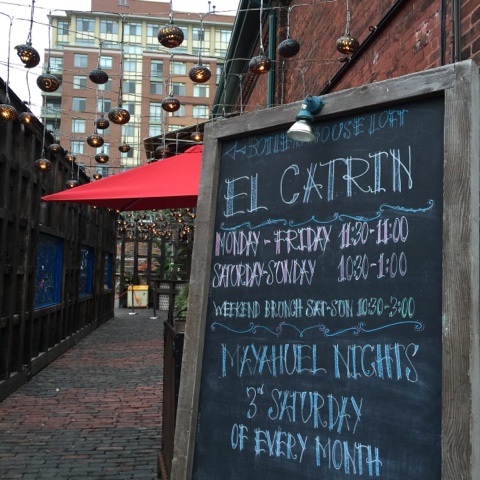 ← BOILER HOUSE LOFT
EL CATRIN
MONDAY - FRIDAY 11:30-11:00
SATURDAY-SUNDAY 10:30-1:00
WEEKEND BRUNCH SAT-SUN 10:30-3:00
MAYAHUEL NIGHTS
3rd SATURDAY
OF EVERY MONTH